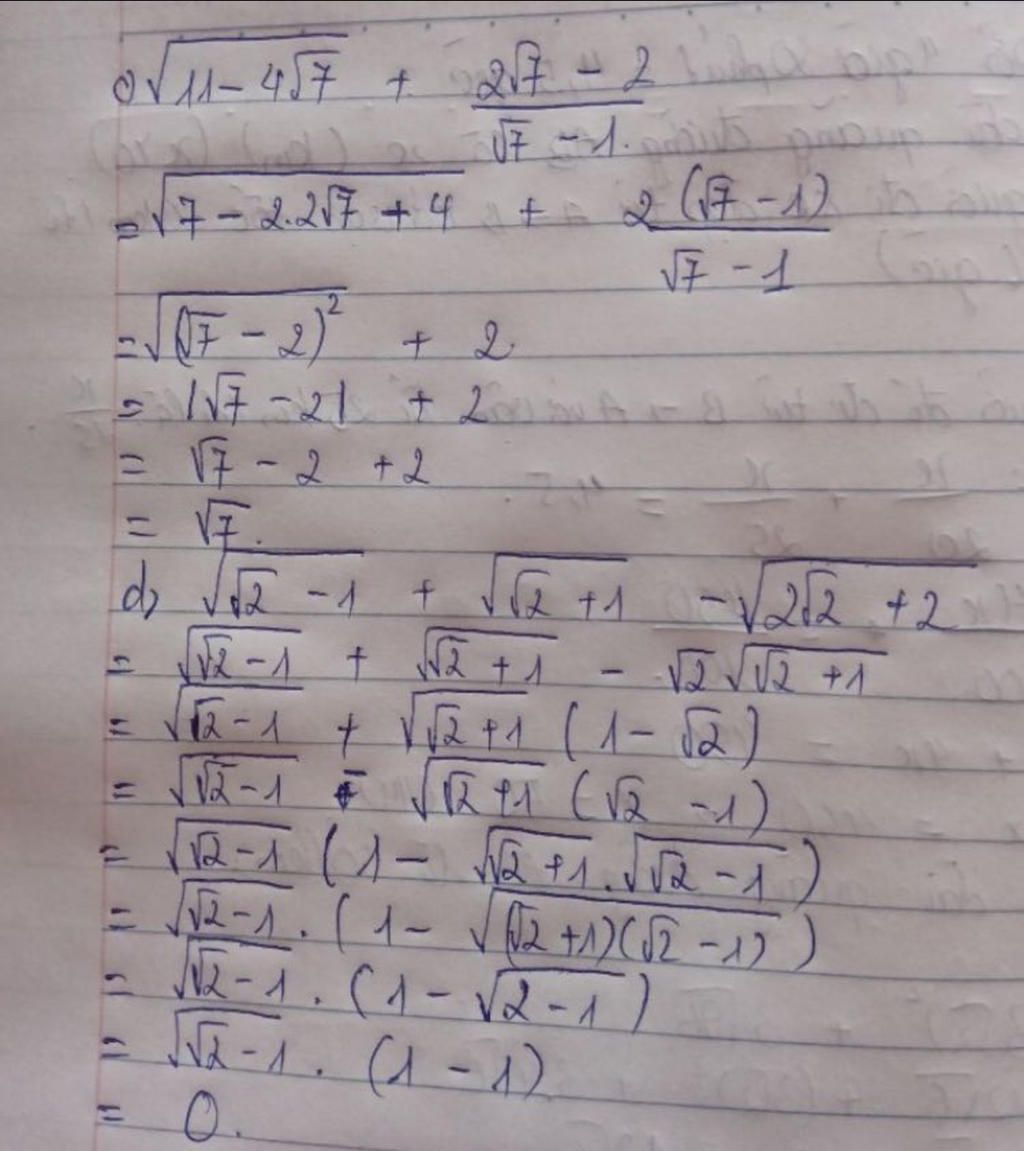 c) √(11 - 4√7) + (2√7 - 2)/(√7 - 1).
= √(7 - 2.2√7 + 4) + 2(√7 - 1)/(√7 - 1)
= √((√7 - 2)²) + 2.
= |√7 - 2| + 2
= √7 - 2 + 2
= √7.
d) √(√2 - 1) + √(√2 + 1) - √(2√2 + 2)
= √(√2 - 1) + √(√2 + 1) - √2 √(√2 + 1)
= √(√2 - 1) + √(√2 + 1) (1 - √2)
= √(√2 - 1) - √(√2 + 1) (√2 - 1)
= √(√2 - 1) (1 - √(√2 + 1) . √(√2 - 1))
= √(√2 - 1) . (1 - √((√2 + 1)(√2 - 1)))
= √(√2 - 1) . (1 - √(2 - 1))
= √(√2 - 1) . (1 - 1)
= 0.